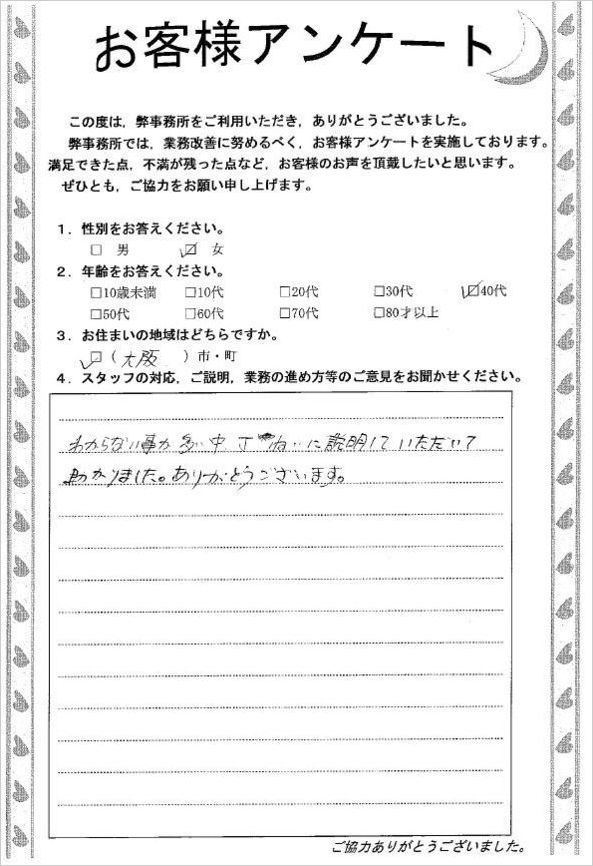 お客様アンケート
この度は，弊事務所をご利用いただき，ありがとうございました。
弊事務所では，業務改善に努めるべく，お客様アンケートを実施しております。
満足できた点，不満が残った点など，お客様のお声を頂戴したいと思います。
ぜひとも，ご協力をお願い申し上げます。
1．性別をお答えください。
□ 男 ☑ 女
2．年齢をお答えください。
□10歳未満 □10代 □20代 □30代 ☑40代
□50代 □60代 □70代 □80才以上
3．お住まいの地域はどちらですか。
☑（ 大阪 ）市・町
4．スタッフの対応，ご説明，業務の進め方等のご意見をお聞かせください。
わからない事が多い中、丁ねいに説明していただいて
助かりました。ありがとうございます。
ご協力ありがとうございました。